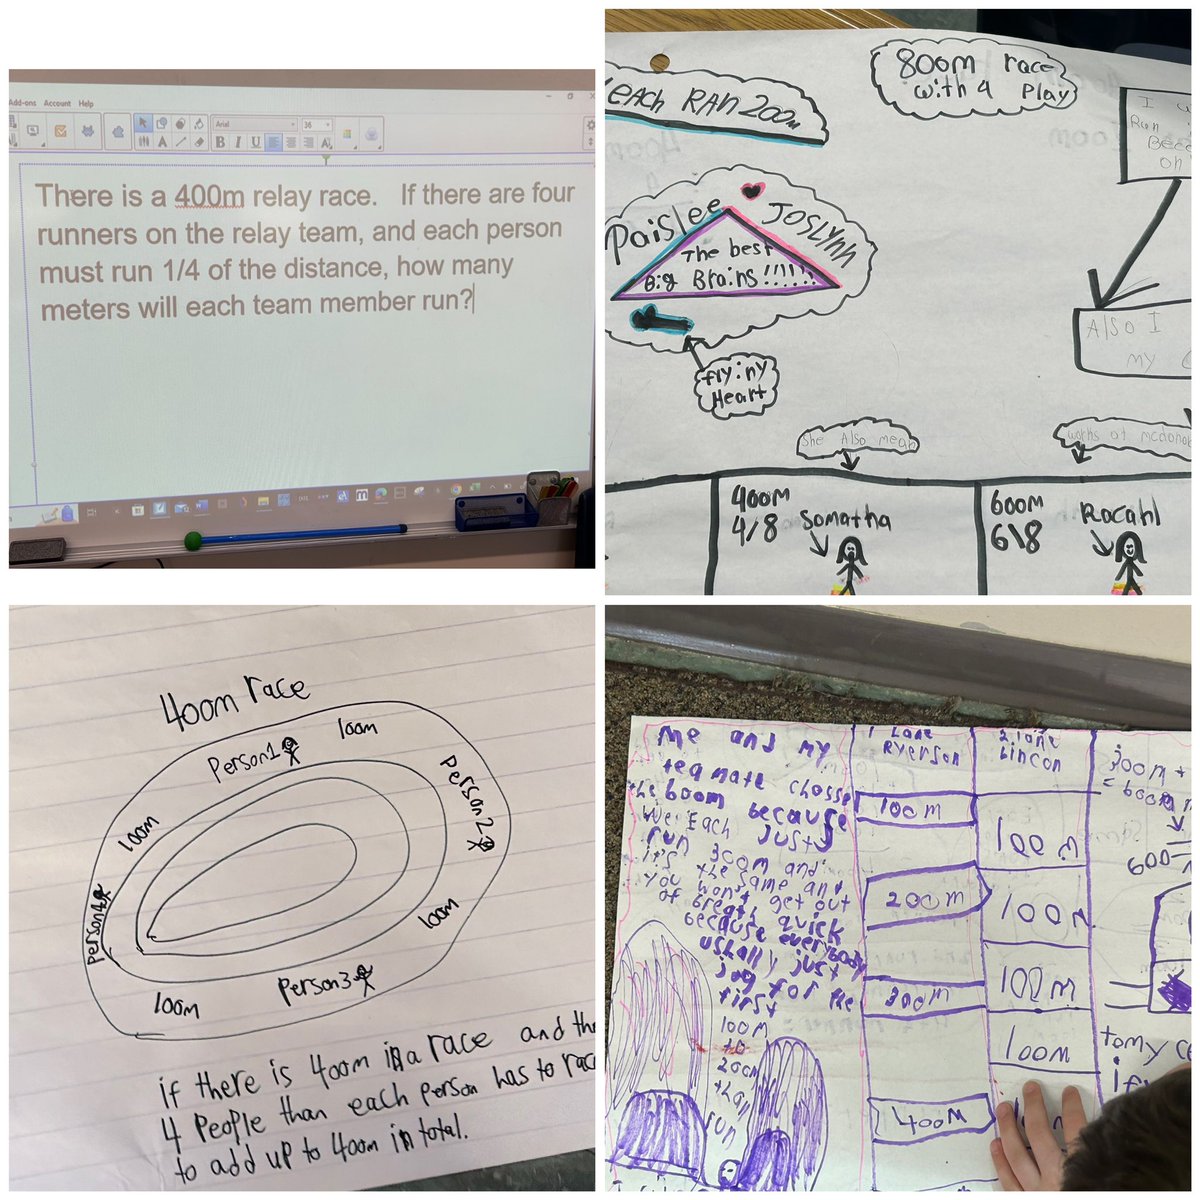 Add-ons Account Help
Arial 36
B I U
There is a 400m relay race. If there are four
runners on the relay team, and each person
must run 1/4 of the distance, how many
meters will each team member run?
EACH RAN 200m
800m race
with 4 Play
I
Run
Bec
on
Paislee JOSLYNN
The best
Big Brains!!!!!!
flying
Heart
Also I
MY
She Also mean
works at mcdona
400m
4/8 Somatha
600m
6\8 Rocahl
400m race
Person1 100m
Person2
100m
100m
Person4
Person3
100m
if there is 400m in a race and the
4 People than each person has to rac
to add up to 400m in total.
Me and my
teamate chosse
the 600m because
We Each just
run 300m and
it's the same and
you won't get out
of breath quick
because everybody
ushally just
jog for the
first
100m
to
200m
thall
run
1 Lane
Ryerson
100m
200m
300m
400m
2 lane
Lincon
100m
100m
100m
100m
300m +
= 600m
600
tomy
if